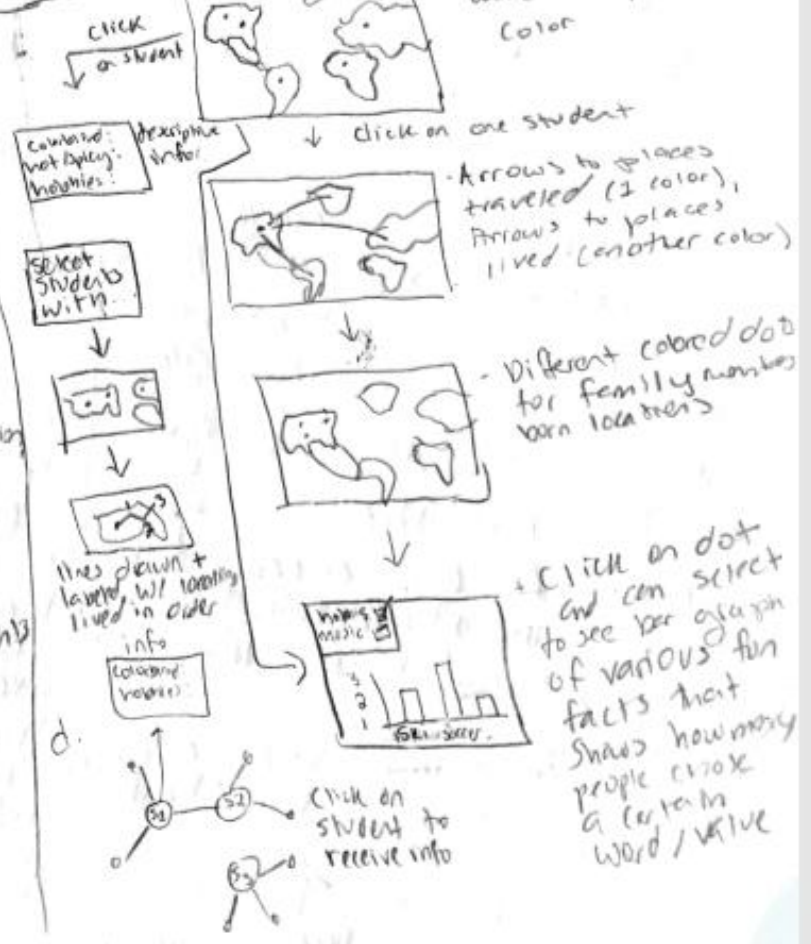 Click
a student
Color
descriptive
info
hot/spicy:
hobbies:
Click on one student
- Arrows to places
traveled (1 color),
Arrows to places
lived (another color)
select
students
with
- Different colored dot
for family members
born locations
lines drawn +
labeled w/ locations
lived in order
info
hobbies:
music
3
2
1
Soccer
- Click on dot
and can select
to see bar graph
of various fun
facts that
shows how many
people chose
a certain
word / value
d.
S1
S2
S3
Click on
student to
receive info